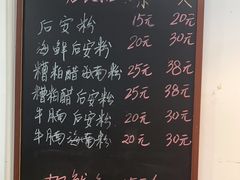 小 大
后安粉 15元 20元
海鲜后安粉 20元 30元
糟粕醋海南粉 25元 38元
糟粕醋后安粉 25元 38元
牛腩后安粉 20元 30元
牛腩海南粉 20元 30元